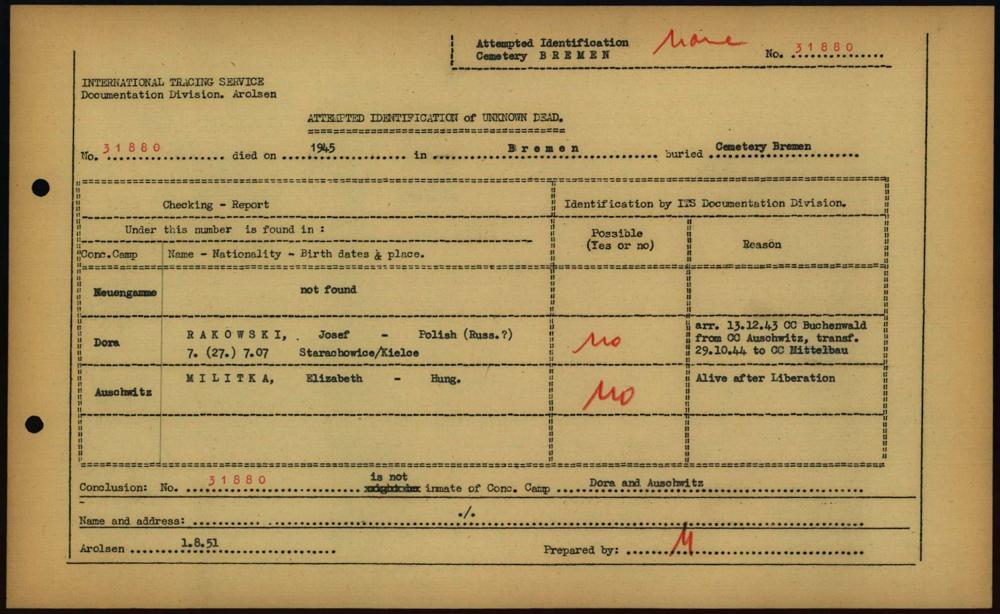 Attempted Identification
Cemetery B R E M E N
None
No. 31880
INTERNATIONAL TRACING SERVICE
Documentation Division. Arolsen
ATTEMPTED IDENTIFICATION of UNKNOWN DEAD.
No. 31880 died on 1945 in B r e m e n buried Cemetery Bremen
Checking - Report
Identification by ITS Documentation Division.
Under this number is found in :
Possible
(Yes or no)
Reason
Conc.Camp
Name - Nationality - Birth dates & place.
Neuengamme
not found
Dora
R A K O W S K I, Josef - Polish (Russ.?)
7. (27.) 7.07 Starachowice/Kielce
No
arr. 13.12.43 CC Buchenwald
from CC Auschwitz, transf.
29.10.44 to CC Mittelbau
Auschwitz
M I L I T K A, Elizabeth - Hung.
No
Alive after Liberation
Conclusion: No. 31880 is not inmate of Conc. Camp Dora and Auschwitz
Name and address: ./.
Arolsen 1.8.51
Prepared by: